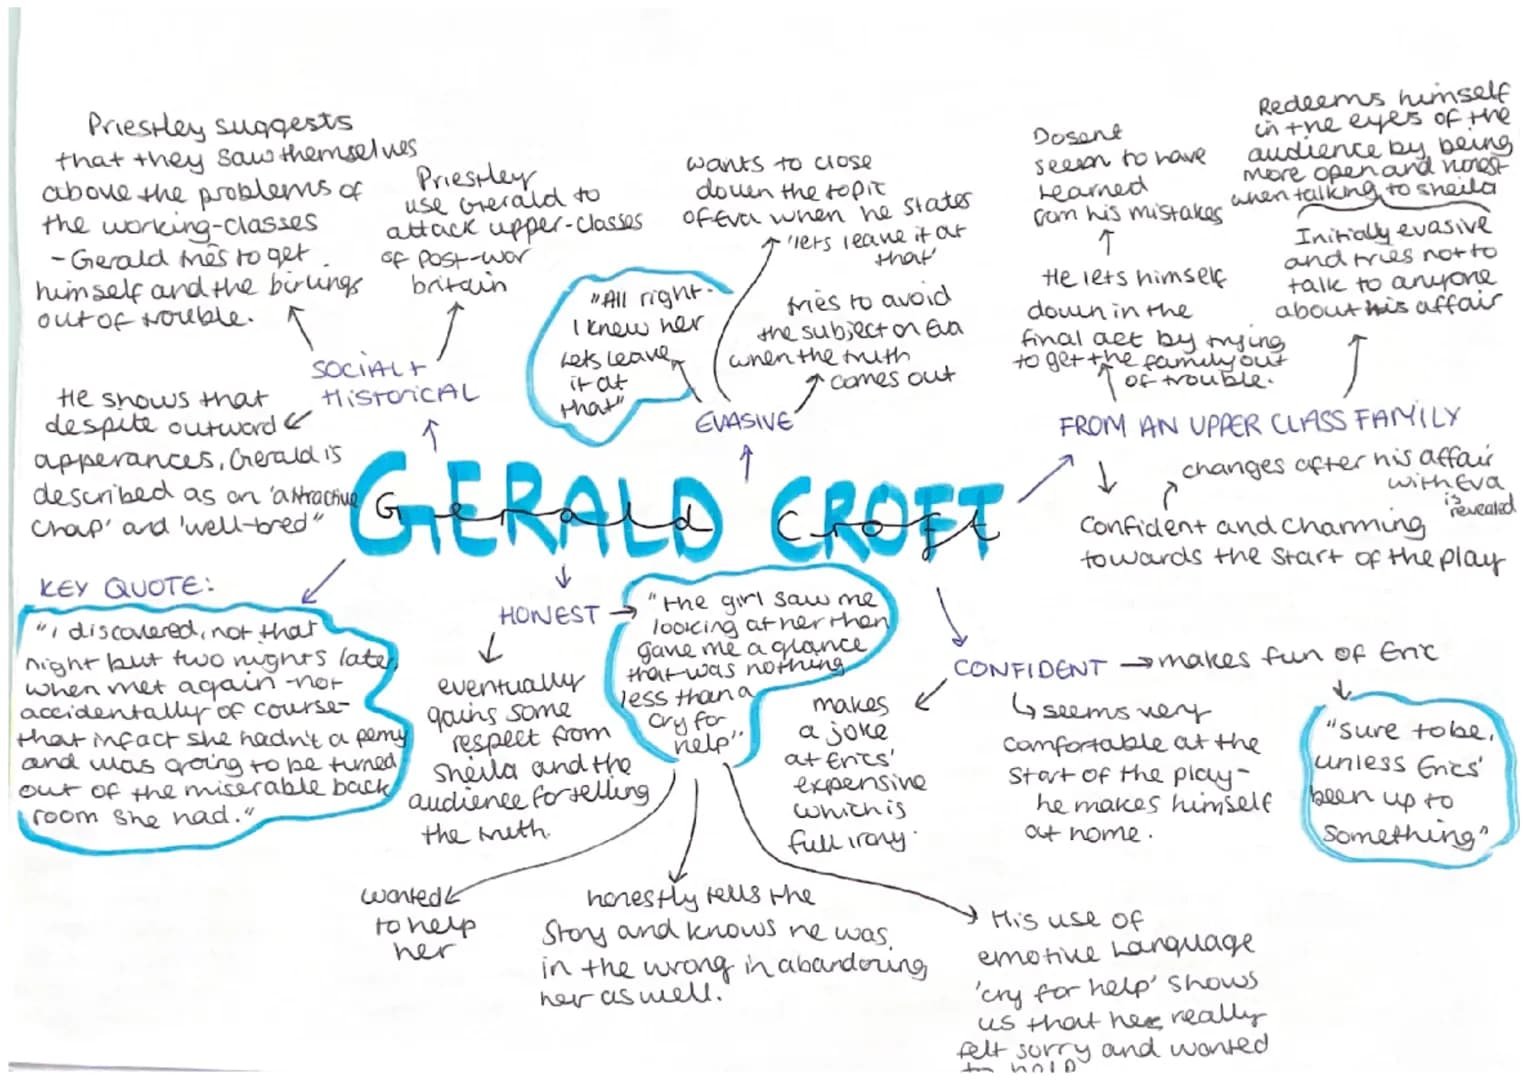 Priestley suggests
that they saw themselves
above the problems of
the working-classes
- Gerald tries to get
himself and the birlings
out of trouble.
Priestley
use Gerald to
attack upper-classes
of post-war
britain
SOCIAL +
HISTORICAL
He shows that
despite outward
apperances, Gerald is
described as an 'attractive
chap' and 'well-bred"
"All right.
I knew her
Lets leave
it at
that"
wants to close
down the topic
of Eva when he states
'lets leave it at
that'
tries to avoid
the subject on Eva
when the truth
comes out
EVASIVE
Dosent
seem to have
Learned
from his mistakes
He lets himself
down in the
final act by trying
to get the family out
of trouble.
Redeems himself
in the eyes of the
audience by being
more open and honest
when talking to sheila
Initially evasive
and tries not to
talk to anyone
about his affair
FROM AN UPPER CLASS FAMILY
changes after his affair
with Eva
is
revealed
Confident and charming
towards the start of the play
GERALD CROFT
Gerald Croft
KEY QUOTE:
"i discovered, not that
night but two nights later,
when met again - not
accidentally of course-
that infact she hadn't a penny
and was going to be turned
out of the miserable back
room she had."
HONEST
eventually
gains some
respect from
Sheila and the
audience for telling
the truth.
"the girl saw me
looking at her then
gave me a glance
that was nothing
less than a
cry for
help"
wanted
to help
her
honestly tells the
Story and knows he was
in the wrong in abandoning
her as well.
His use of
emotive Language
'cry for help' shows
us that he really
felt sorry and wanted
to help
CONFIDENT
makes fun of Eric
makes
a joke
at Erics'
expensive
which is
full irony.
seems very
comfortable at the
start of the play-
he makes himself
at home.
"sure to be,
unless Erics'
been up to
something"